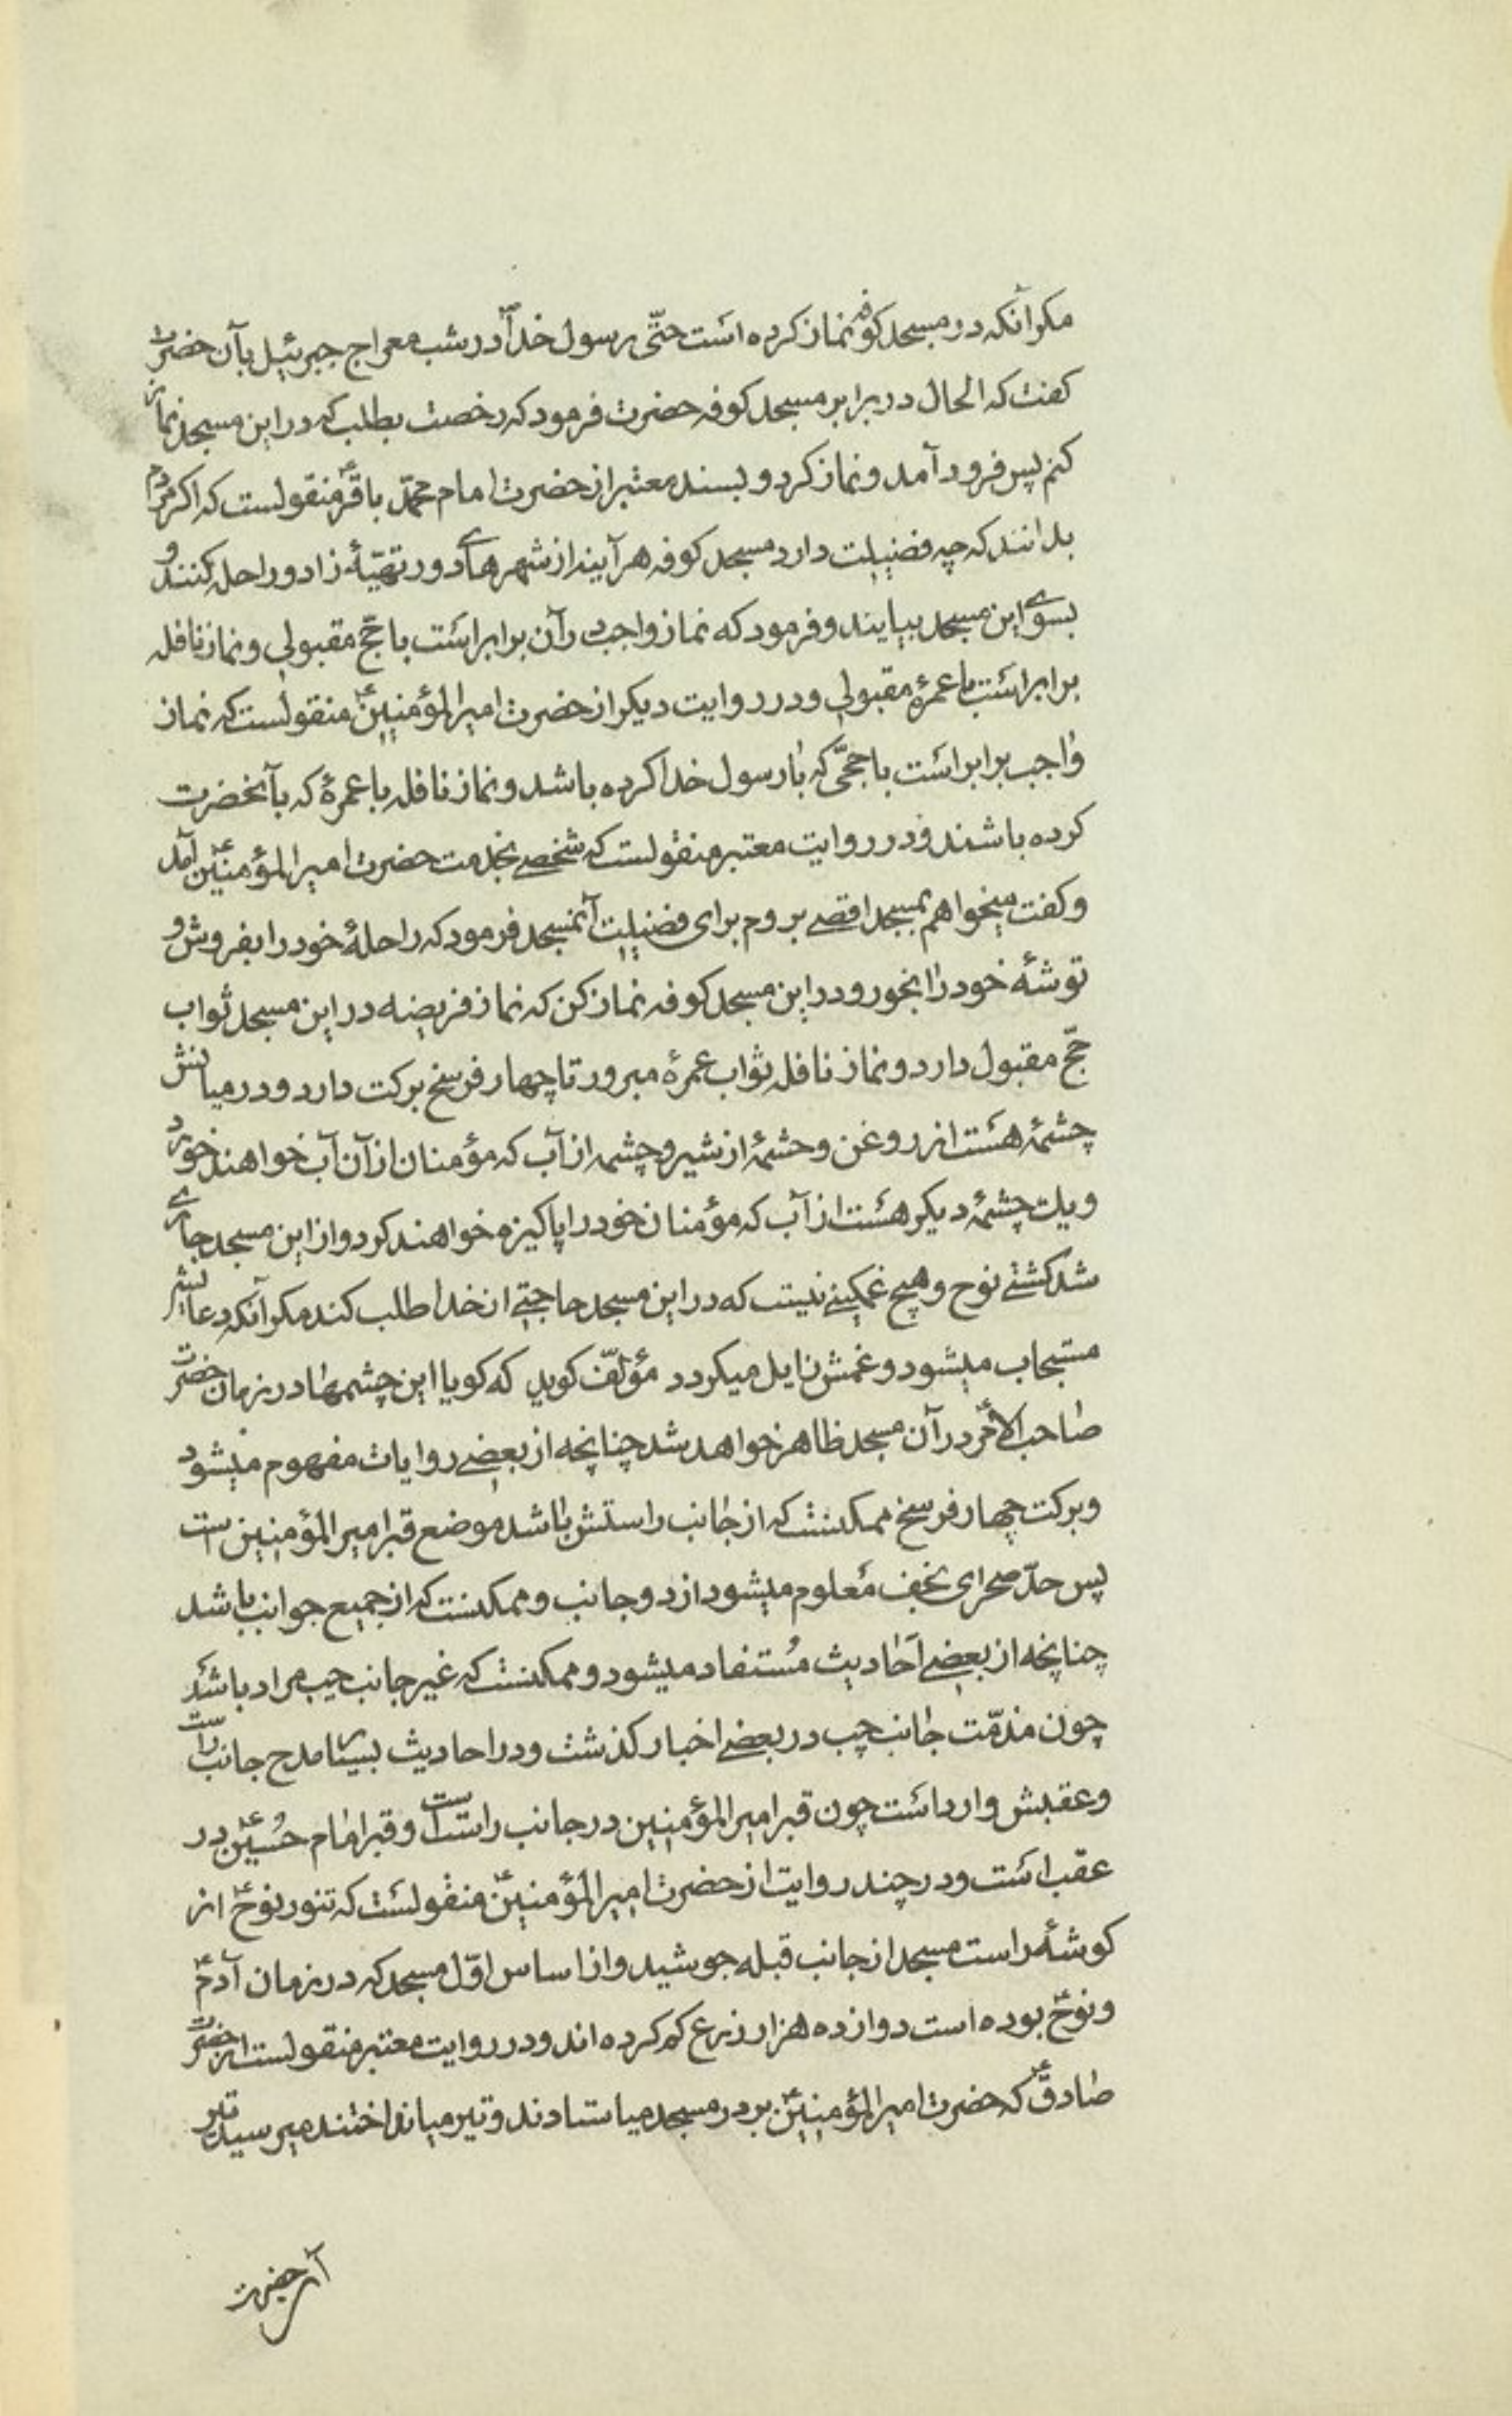 مکر آنکه در مسجد کوفه نماز کرده است حتّی رسول خداؐ در شب معراج جبرئیل بآن حضرت
کفت که الحال در برابر مسجد کوفه حضرت فرمود که رخصت بطلب که در این مسجد نماز
کنم پس فرود آمد و نماز کرد و بسند معتبر از حضرت امام محمّد باقرؑ منقولست که اکر مردم
بدانند که چه فضیلت دارد مسجد کوفه هر آیند از شهرهای دور تهیّهٔ زاد و راحله کنند و
بسوی این مسجد بیایند و فرمود که نماز واجب در آن برابر است با حجّ مقبولی و نماز نافله
برابر است با عمرهٔ مقبولی و در روایت دیکر از حضرت امیرالمؤمنینؑ منقولست که نماز
واجب برابر است با حجّی که با رسول خدا کرده باشد و نماز نافله با عمرهٔ که بآنحضرت
کرده باشند و در روایت معتبر منقولست که شخصی بخدمت حضرت امیرالمؤمنینؑ آمد
و کفت میخواهم بمسجد اقصی بروم برای فضیلت آنمسجد فرمود که راحلهٔ خود را بفروش و
توشهٔ خود را بخور و در این مسجد کوفه نماز کن که نماز فریضه در این مسجد ثواب
حجّ مقبول دارد و نماز نافله ثواب عمرهٔ مبرور تا چهار فرسخ برکت دارد و در میانش
چشمهٔ هست از روغن و حشمهٔ از شیر و چشمه از آب که مؤمنان از آن آب خواهند خورد
و یک چشمهٔ دیکر هست از آب که مؤمنان خود را پاکیزه خواهند کرد و از این مسجد جاری
شد کشتی نوح و هیچ غمکینی نیست که در این مسجد حاجتی از خدا طلب کند مکر آنکه دعایش
مستجاب میشود و غمش زایل میکردد مؤلّف کوید که کویا این چشمها در زمان حضرت
صاحب الامرؑ در آن مسجد ظاهر خواهد شد چنانچه از بعضی روایات مفهوم میشود
و برکت چهار فرسخ ممکنست که از جانب راستش باشد موضع قبر امیرالمؤمنین است
پس حدّ صحرای نجف معلوم میشود از دو جانب و ممکنست که از جمیع جوانب باشد
چنانچه از بعضی احادیث مُستفاد میشود و ممکنست که غیر جانب چپ مراد باشد
چون مذمّت جانب چپ در بعضی اخبار کذشت و در احادیث بسیار مدح جانب راست
و عقبش وارد است چون قبر امیرالمؤمنین در جانب راست است و قبر امام حُسینؑ در
عقب است و در چند روایت از حضرت امیرالمؤمنینؑ منقولست که تنور نوحؑ از
کوشهٔ راست مسجد از جانب قبله جوشید و از اساس اوّل مسجد که در زمان آدمؑ
و نوحؑ بوده است دوازده هزار زرع کم کرده اند و در روایت معتبر منقولست از حضرت
صادقؑ که حضرت امیرالمؤمنینؑ بر در مسجد میاستادند و تیر میانداختند میرسید تیر
آن حضرت